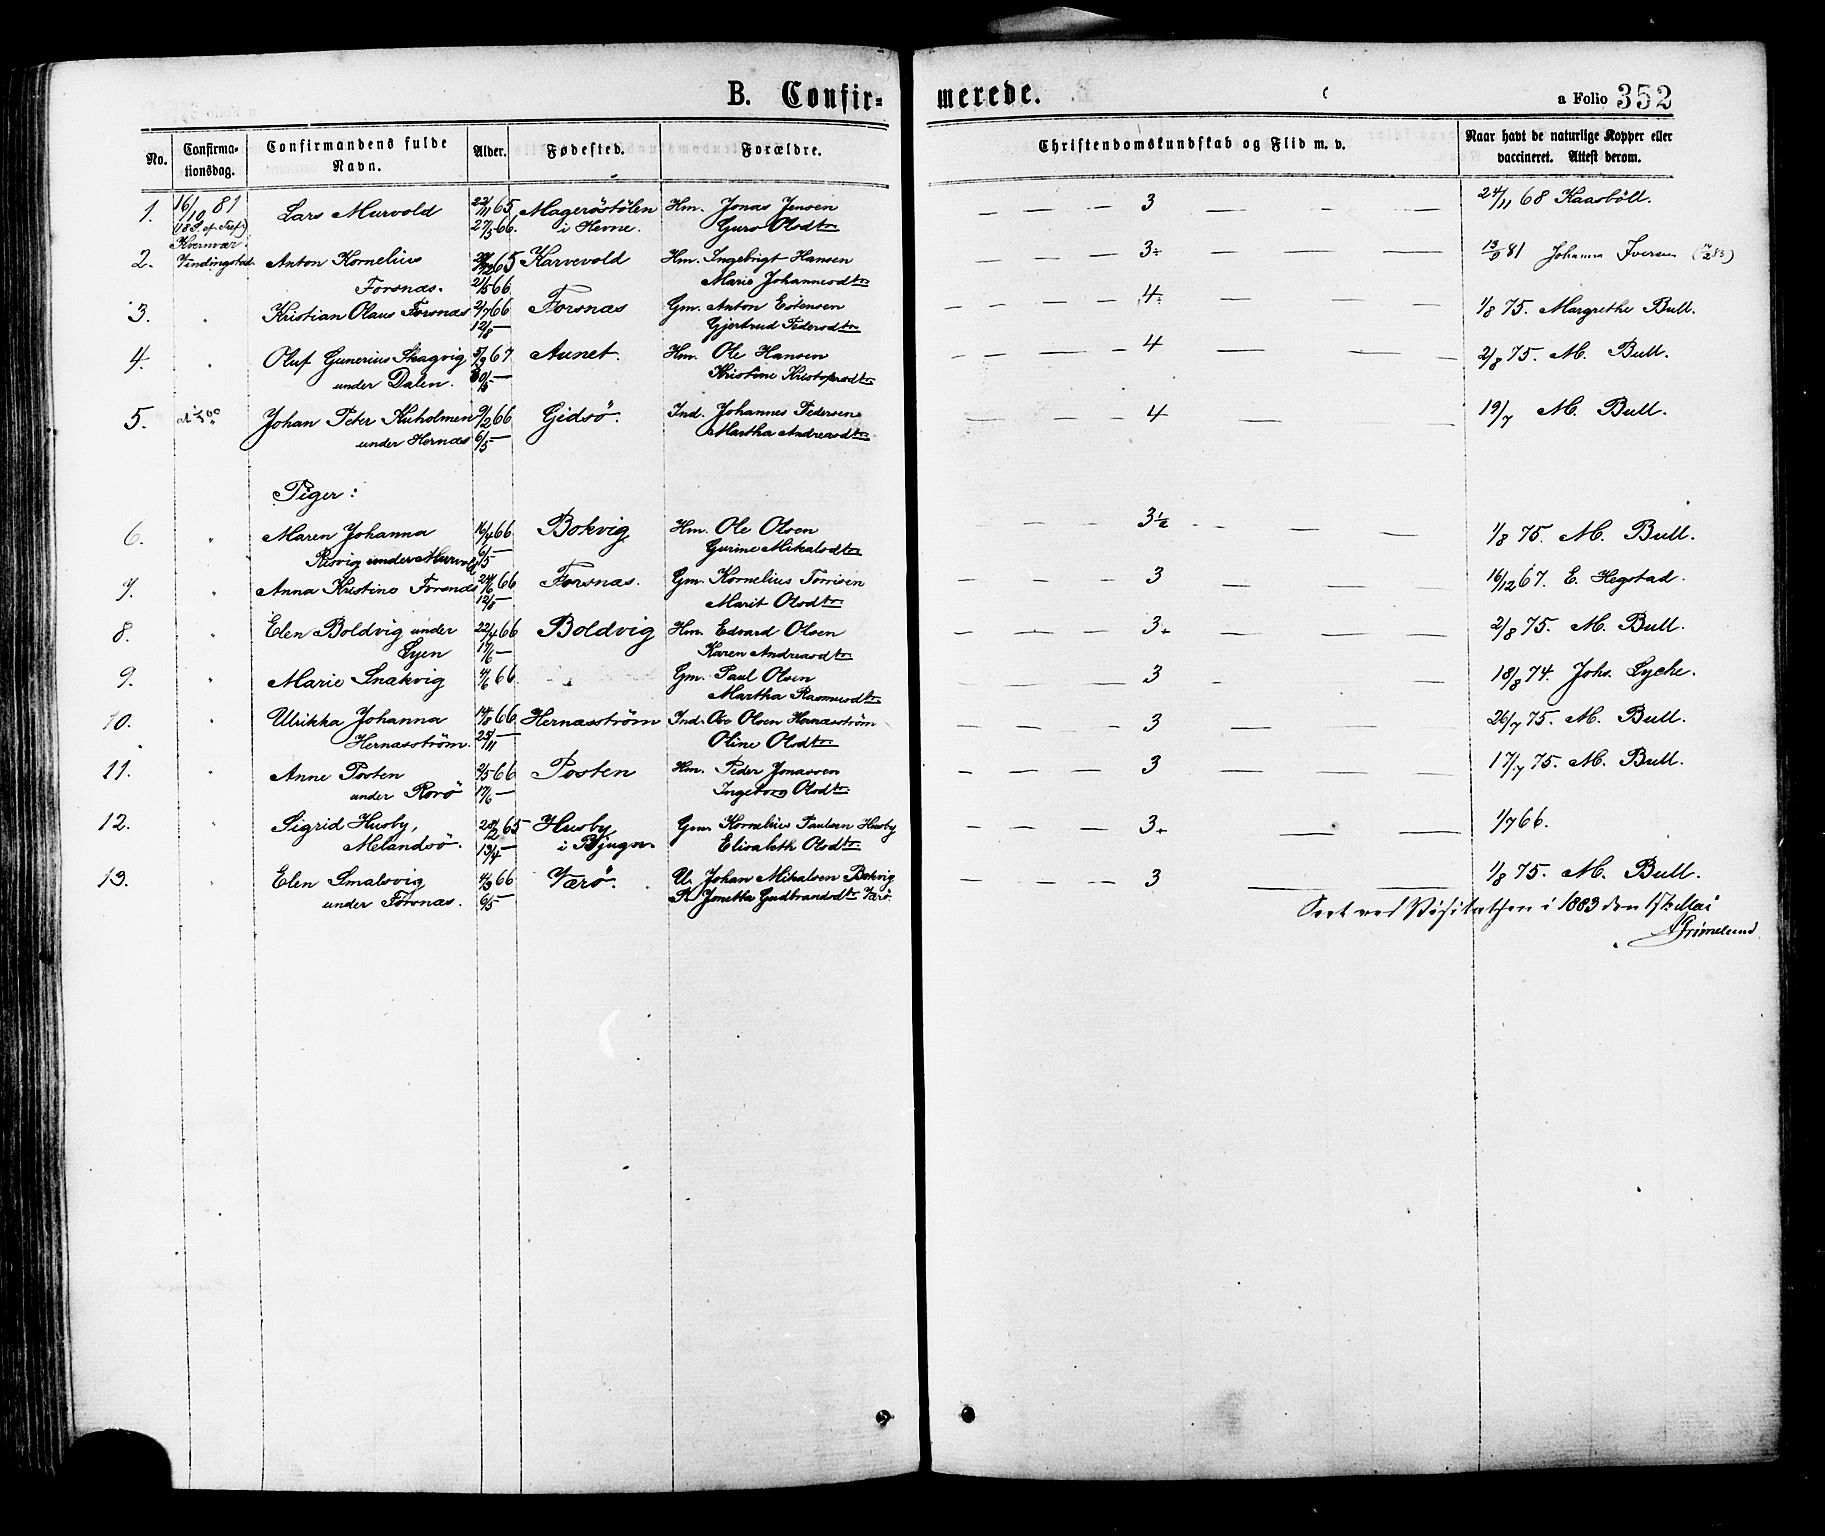 B. Confir-
merede.
a Folio 352
No.
Confirma-
tionsdag.
Confirmandens fulde
Navn.
Alder.
Fødested.
Forældre.
Christendomskundskab og Flid m. v.
Naar havt de naturlige Kopper eller
vaccineret. Attest derom.
1. 16/10 81 Lars Murvold 22/11 65 Magerøstølen Hm. Jonas Jensen — — — 3 — — — 24/11 68 Kaasböll.
27/5 66. i Hevne. Guro Olsdtr
Kvenvær
2. Vindingstad Anton Kornelius 65 Karvevold Hm. Ingebrigt Hansen — — — 3÷ — — — 13/9 81 Johanna Iversen
Forsnæs. 2/5 66 Marie Johannesdtr
3. " Kristian Olaus Forsnæs 2/7 66 Forsnæs Gm. Anton Estensen — — — 4÷ — — — 1/8 75. Margrethe Bull.
12/8 — Gjertrud Pedersdtr
4. " Oluf Gunerius Skagvig 5/2 67 Aunet. Hm. Ole Hansen — — — 4 — — — 2/8 75. M. Bull.
under Dalen. Kristine Kristofersdtr
5. Johan Peter Kuholmen 9/2 66 Gidsö. Ind. Johannes Pedersen — — — 4 — — — 19/7 M. Bull.
under Hernæs 6/5 — Martha Andreasdtr
Piger:
6. " Maren Johanna 16/4 66 Bokvig Hm. Ole Olsen — — 3½ — — — 1/8 75. M. Bull.
Risvig under Murvold 6/5 — Gurine Mikalsdtr
7. " Anna Kristine Forsnæs 24/6 66 Forsnæs. Gm. Kornelius Torrisen — — — 3 — — — 16/12 67. E. Hegstad.
12/5 — Marit Olsdtr
8. " Elen Boldvig under 22/4 66 Boldvig Hm. Edvard Olsen — — — 3+ — — — 2/8 75. M. Bull.
Lyen 17/6 — Karen Andreasdtr
9. " Marie Snækvig 4/6 66 Gm. Paul Olsen — — — 3 — — — 18/8 74. Johs. Lyche.
Martha Rasmusdtr
10. " Ulrikka Johanna 14/8 66 Hernæsström Ind. Ole Olsen Hernæsström — — — 3 — — 26/7 75. M. Bull.
Hernæsström. 25/11 — Oline Olsdtr
11. " Anne Posten 9/5 66 Posten Hm. Peder Jonassen — — — 3 — — — 17/7 75. M. Bull.
under Rorö 17/6 — Ingeborg Olsdtr
12. " Sigrid Husby, 28/12 65 Husby Gm. Kornelius Paulsen Husby — — — 3+ — — 1/7 66.
Melandsö. 13/4 — i Bjugn. Elisabeth Olsdtr
13. " Elen Smalsvig 4/3 66 Værö. U. Johan Mikalsen Bokvig — — — 3 — — 1/8 75. M. Bull.
under Forsnæs. 6/5 — P. Jonetta Gudbrandsdtr Værö.
Seet ved Visitatsen i 1883 den 17de Mai
Grimelund